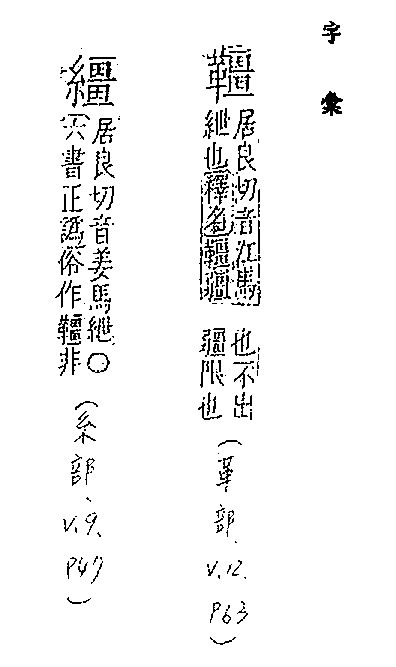 字彙
韁
居良切音江馬
紲也釋名韁疆
也不出
疆限也
(革部、V.12. P63)
繮
居良切音姜馬紲〇
六書正譌俗作韁非
(糸部、V.9. P47)